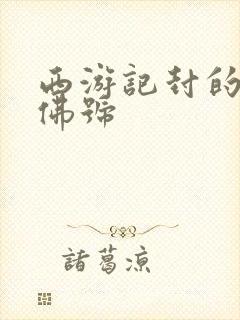 西游記封的
佛號
諸葛凉